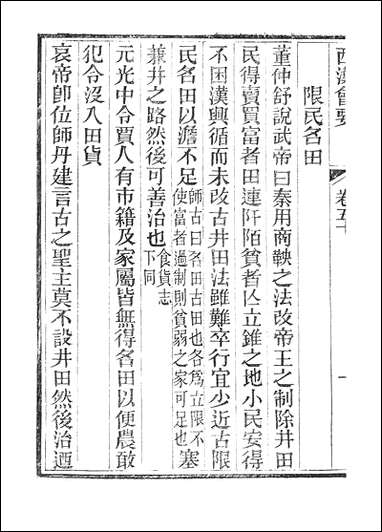 西漢會要
卷五十
一
限民名田
董仲舒說武帝曰秦用商鞅之法改帝王之制除井田
民得賣買富者田連阡陌貧者亾立錐之地小民安得
不困漢興循而未改古井田法雖難卒行宜少近古限
民名田以澹不足師古曰名田占田也各爲立限不使富者過制則貧弱之家可足也塞
兼并之路然後可善治也食貨志下同
元光中令賈人有市籍及家屬皆無得名田以便農敢
犯令沒入田貨
哀帝卽位師丹建言古之聖主莫不設井田然後治迺